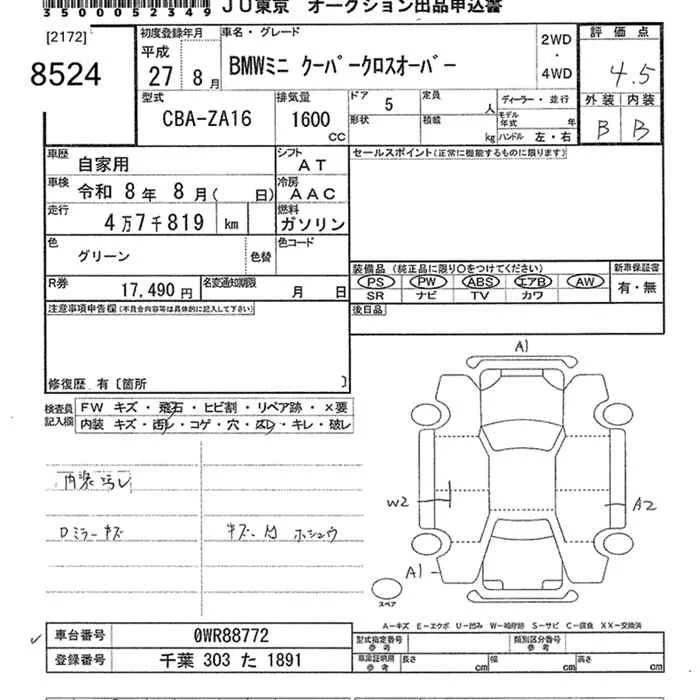 35000052349 JU東京 オークション出品申込書
[2172]
8524
初度登録年月
平成
27 8月
車名・グレード
BMWミニ クーパークロスオーバー
2WD
・
4WD
評価点
4.5
外装 内装
B B
型式
CBA-ZA16
排気量
1600
CC
ドア 5
定員 人
形状
積載 kg
ディーラー・並行
モデル年式 年
ハンドル 左・右
車歴
自家用
シフト
AT
セールスポイント(正常に機能するものに限ります)
車検
令和 8年 8月( 日)
冷房
AAC
走行
4万7千819 km
燃料
ガソリン
色
グリーン
色替
色コード
装備品(純正品に限り○をつけてください)
新車保証書
PS PW ABS エアB AW
有・無
SR ナビ TV カワ
R券
17,490 円
名変通知期限
月 日
後日品
注意事項申告欄(不具合内容等は具体的に記入して下さい)
修復歴 有〔箇所 〕
検査員
記入欄
FW キズ・飛石・ヒビ割・リペア跡・×要
内装 キズ・汚レ・コゲ・穴・スレ・キレ・破レ
内装汚レ
Dミラーキズ
キズ
ホシュウ
A1
W2
A2
A1
スペア
A-キズ E-エクボ U-凹み W-補修跡 S-サビ C-腐食 XX-交換済
車台番号
0WR88772
型式指定番号
参考
類別区分番号
参考
登録番号
千葉 303 た 1891
車庫証明用
参考
長さ cm
幅 cm
高さ cm